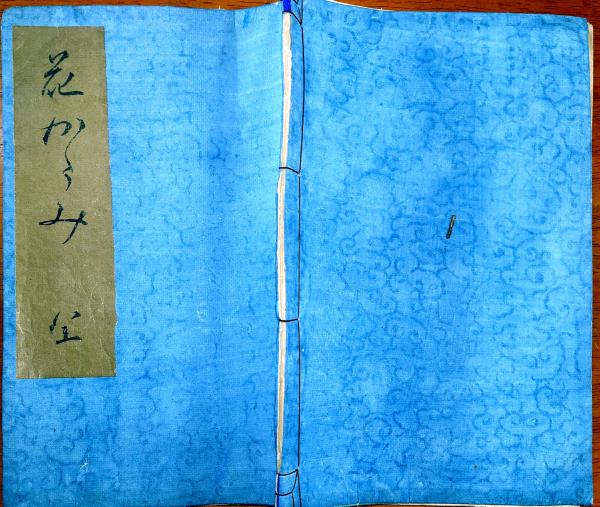 花かゝみ 全